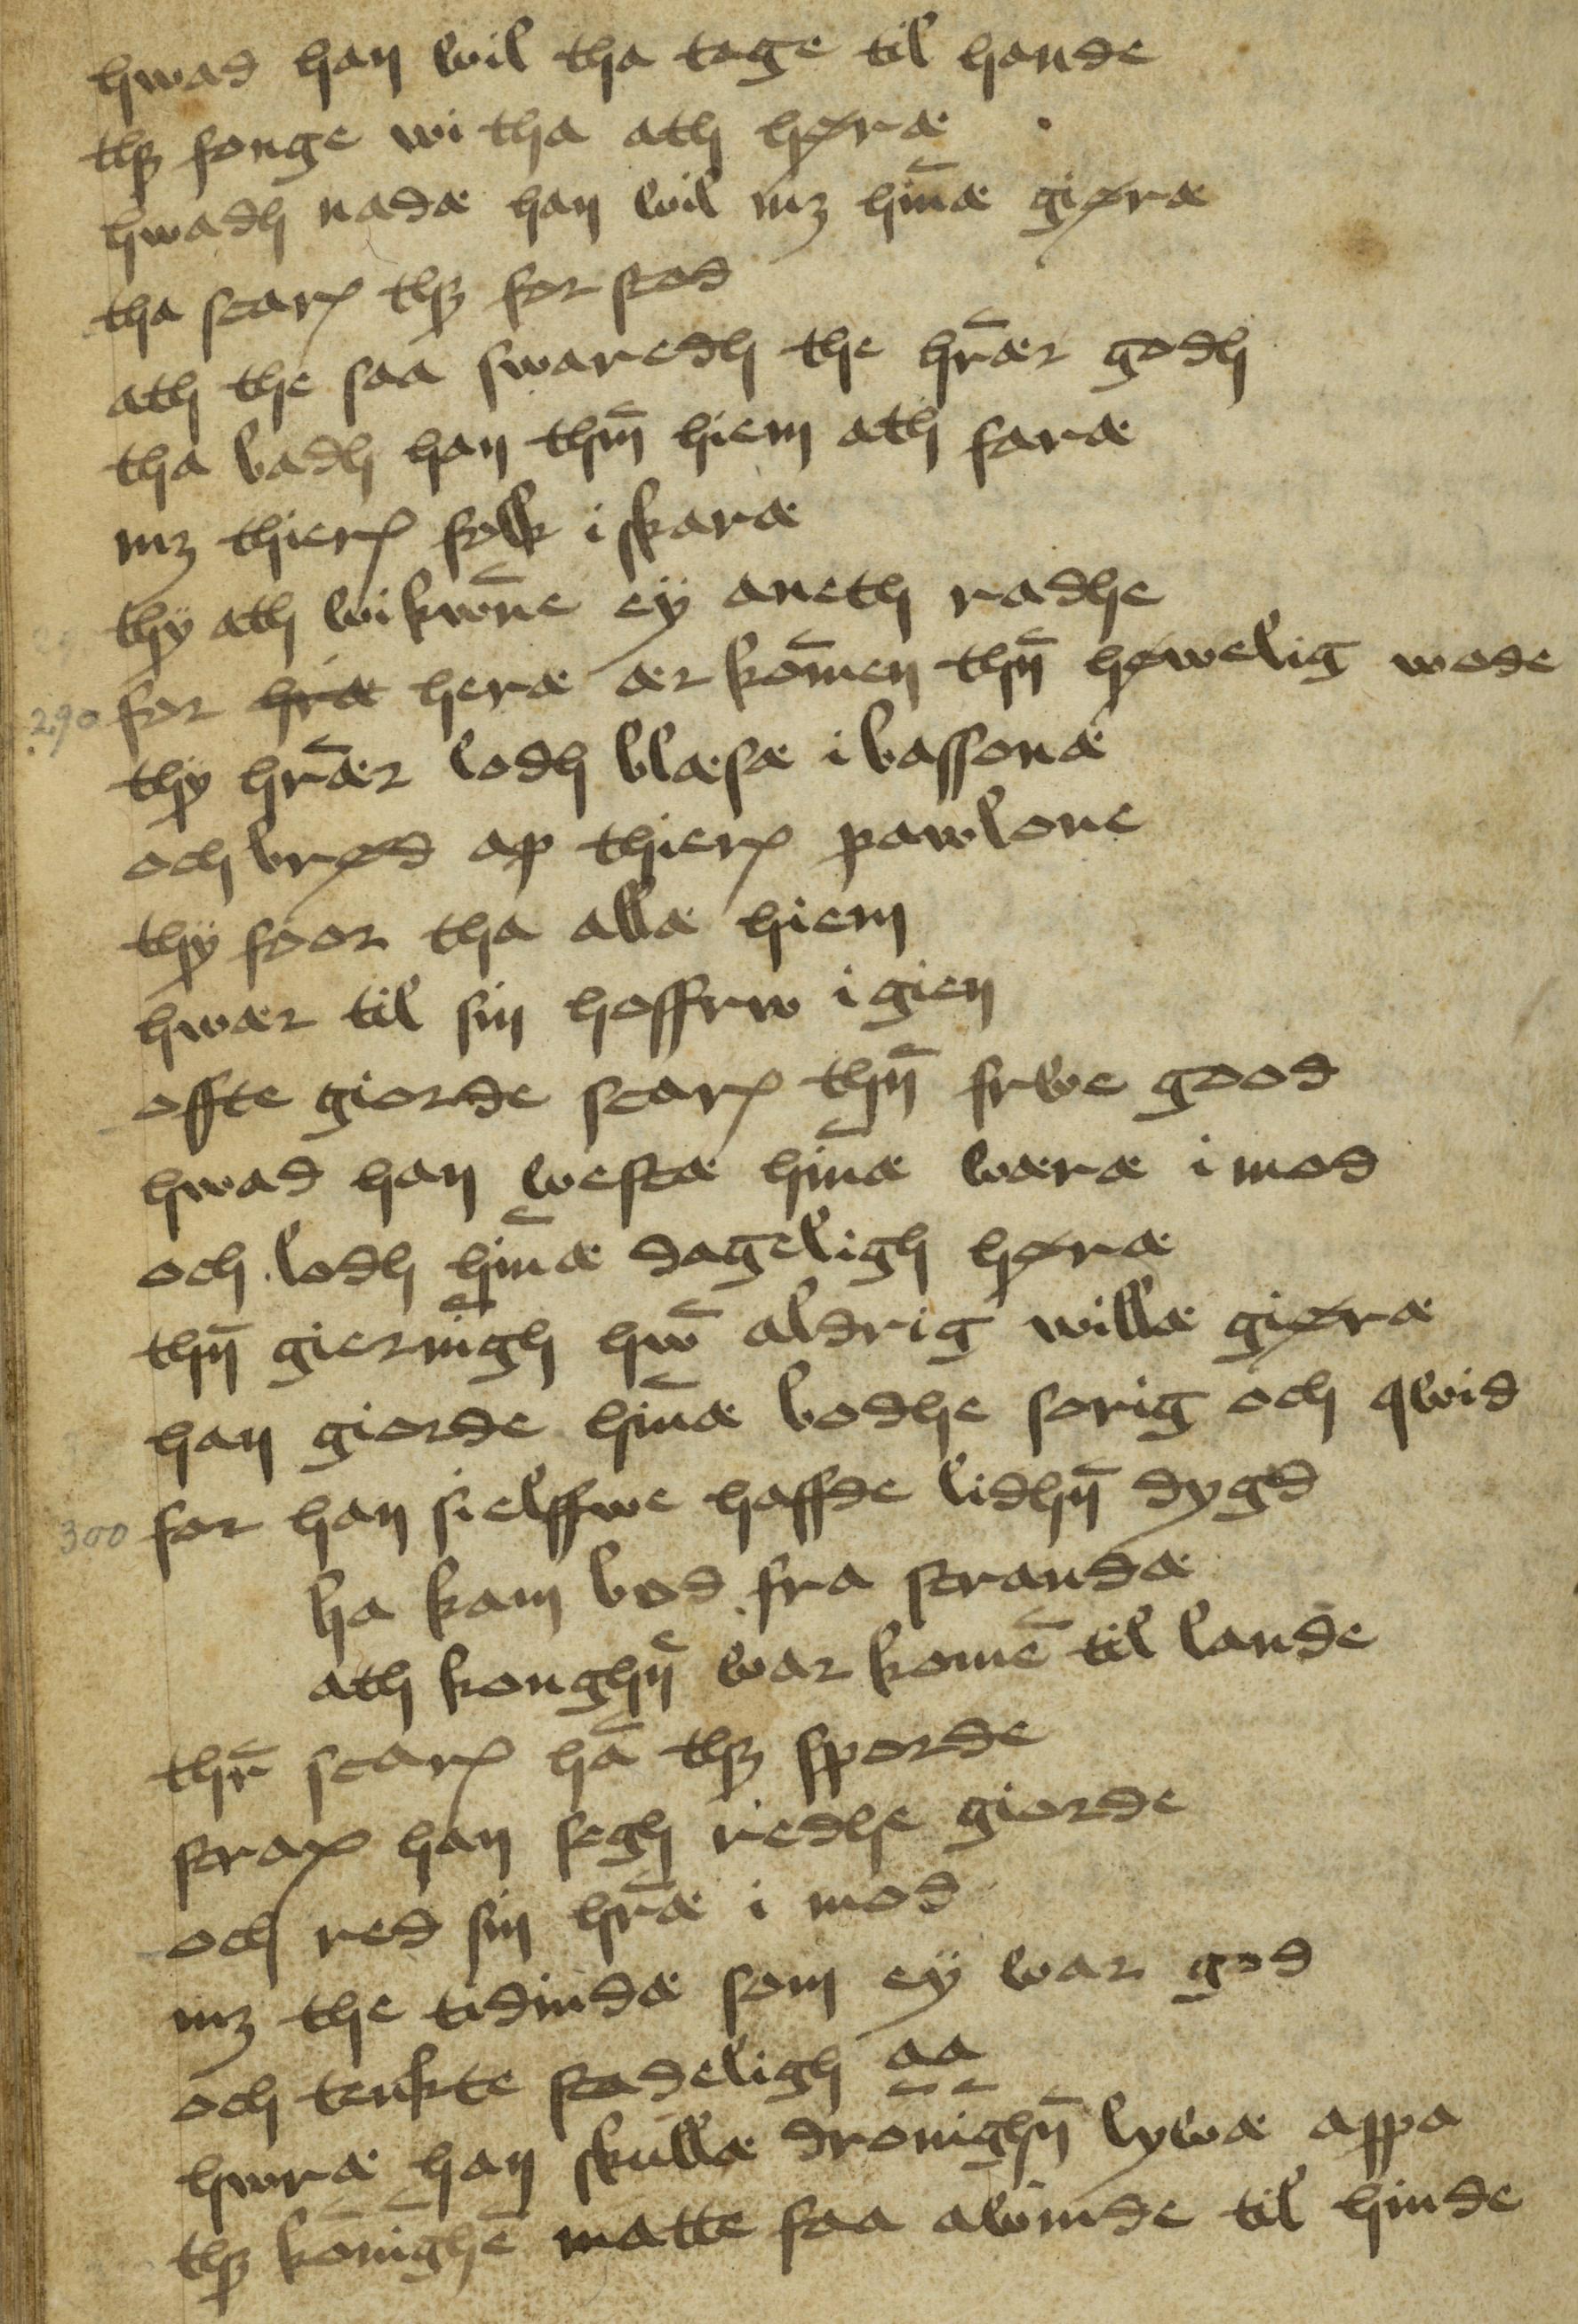 hwad han wil tha tage til hande
thꝫ fonge wi tha ath høræ
hwadh nadæ han wil mꝫ hin̄æ giøræ
tha scarp thꝫ for stod
ath the saa swaredh the hr̄ær godh
tha badh han thm̄ hiem ath faræ
mꝫ thierꝭ folk i skaræ
thÿ ath wi kwn̄e eÿ aneth radhe
290 for hræ heræ ær kom̄en thn̄ høwelig wode
thÿ hr̄ær lodh blæsæ i bassonæ
och brød ap thierꝭ pawlone
thÿ foor tha allæ hiem
hwær til sin hoffrw igien
offte giorde scarp thn̄ frwe good
hwad han westæ hin̄æ wæræ i mod
och lodh hin̄æ dageligh høræ
thn̄ giernīgh hw̄ aldrig willæ giøræ
han giorde hin̄æ bodhe sorig och qwid
300 for han sielffwe haffde lidhn̄ dygd
ha kam bod fra strandæ
ath konghn̄ war komē til lande
thr̄ scarp hā thꝫ sporde
strax han segh redhe giorde
och red sin hr̄æ i mod
mꝫ the tidindæ som eÿ war god
och tenkte stadeligh aa
hwræ han skullæ dronīghn̄ lywæ appa
thꝫ kōnīghē matte faa awinde til hinde